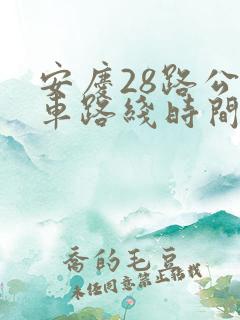 安慶28路公
車路綫時間
喬的毛豆
未经同意禁止搬找